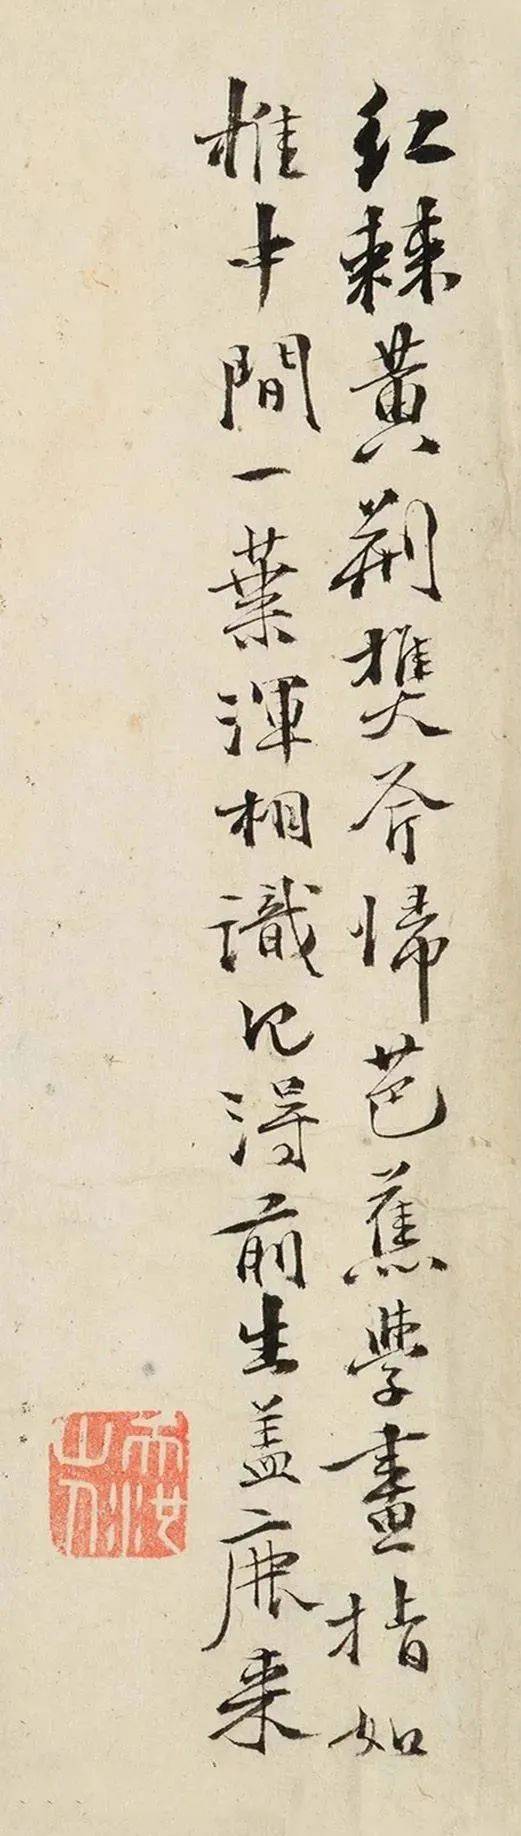 紅棘黃荊樵斧歸芭蕉學畫指如
椎中間一葉渾相識記得前生蓋鹿來